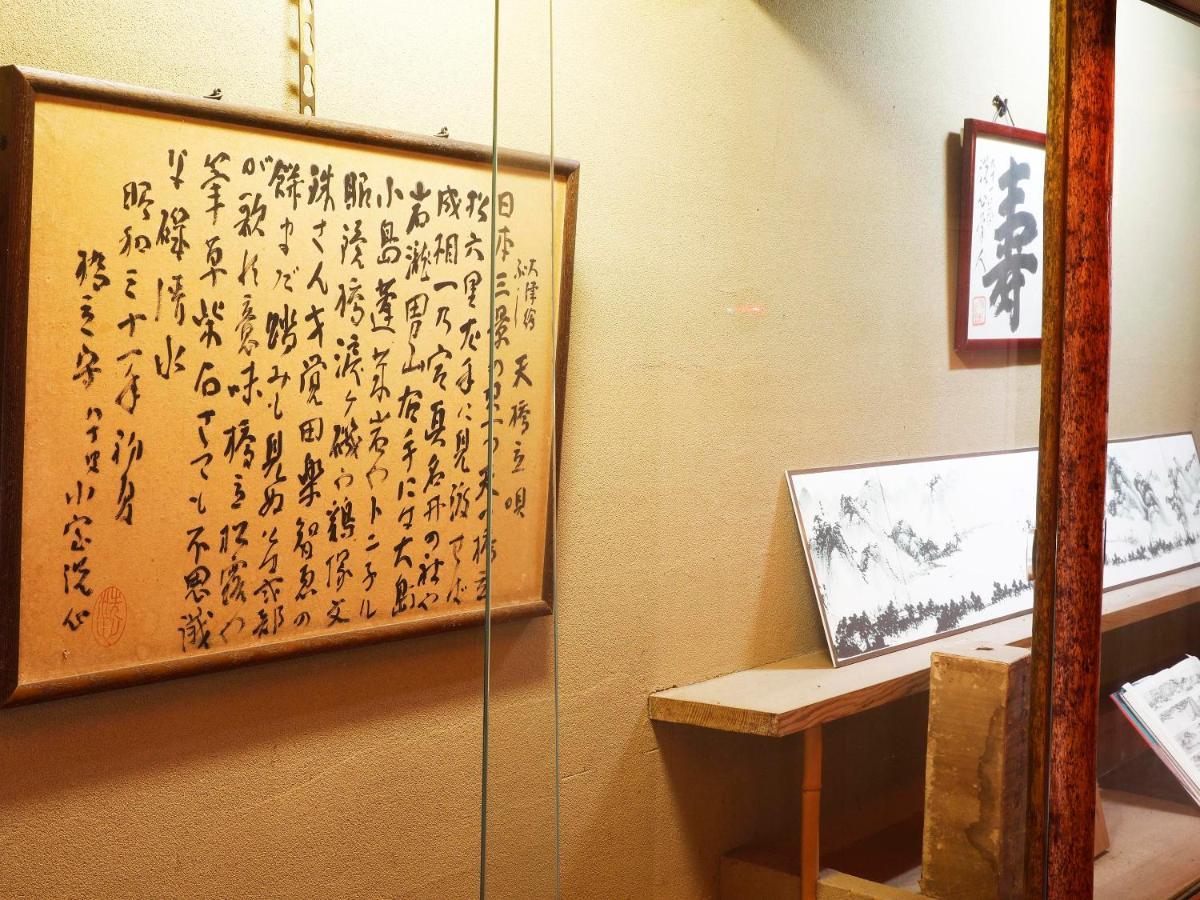 大津絵
ぶし
天橋立唄
日本三景の一つ天の橋立
松六里左手に見渡せば
成相一乃宮真名井の社や
岩瀧男山右手には大島
小島蓬莱岩やトン子ル
橋涙ヶ磯や鶏塚文
珠さん才覚田楽智恵の
餅まだ踏みも見ぬ小式部
が歌の意味橋立松露や
筆草柴石さても不思議
な磯清水
昭和三十一年初夏
橋立守 八十 小室洗心
寿